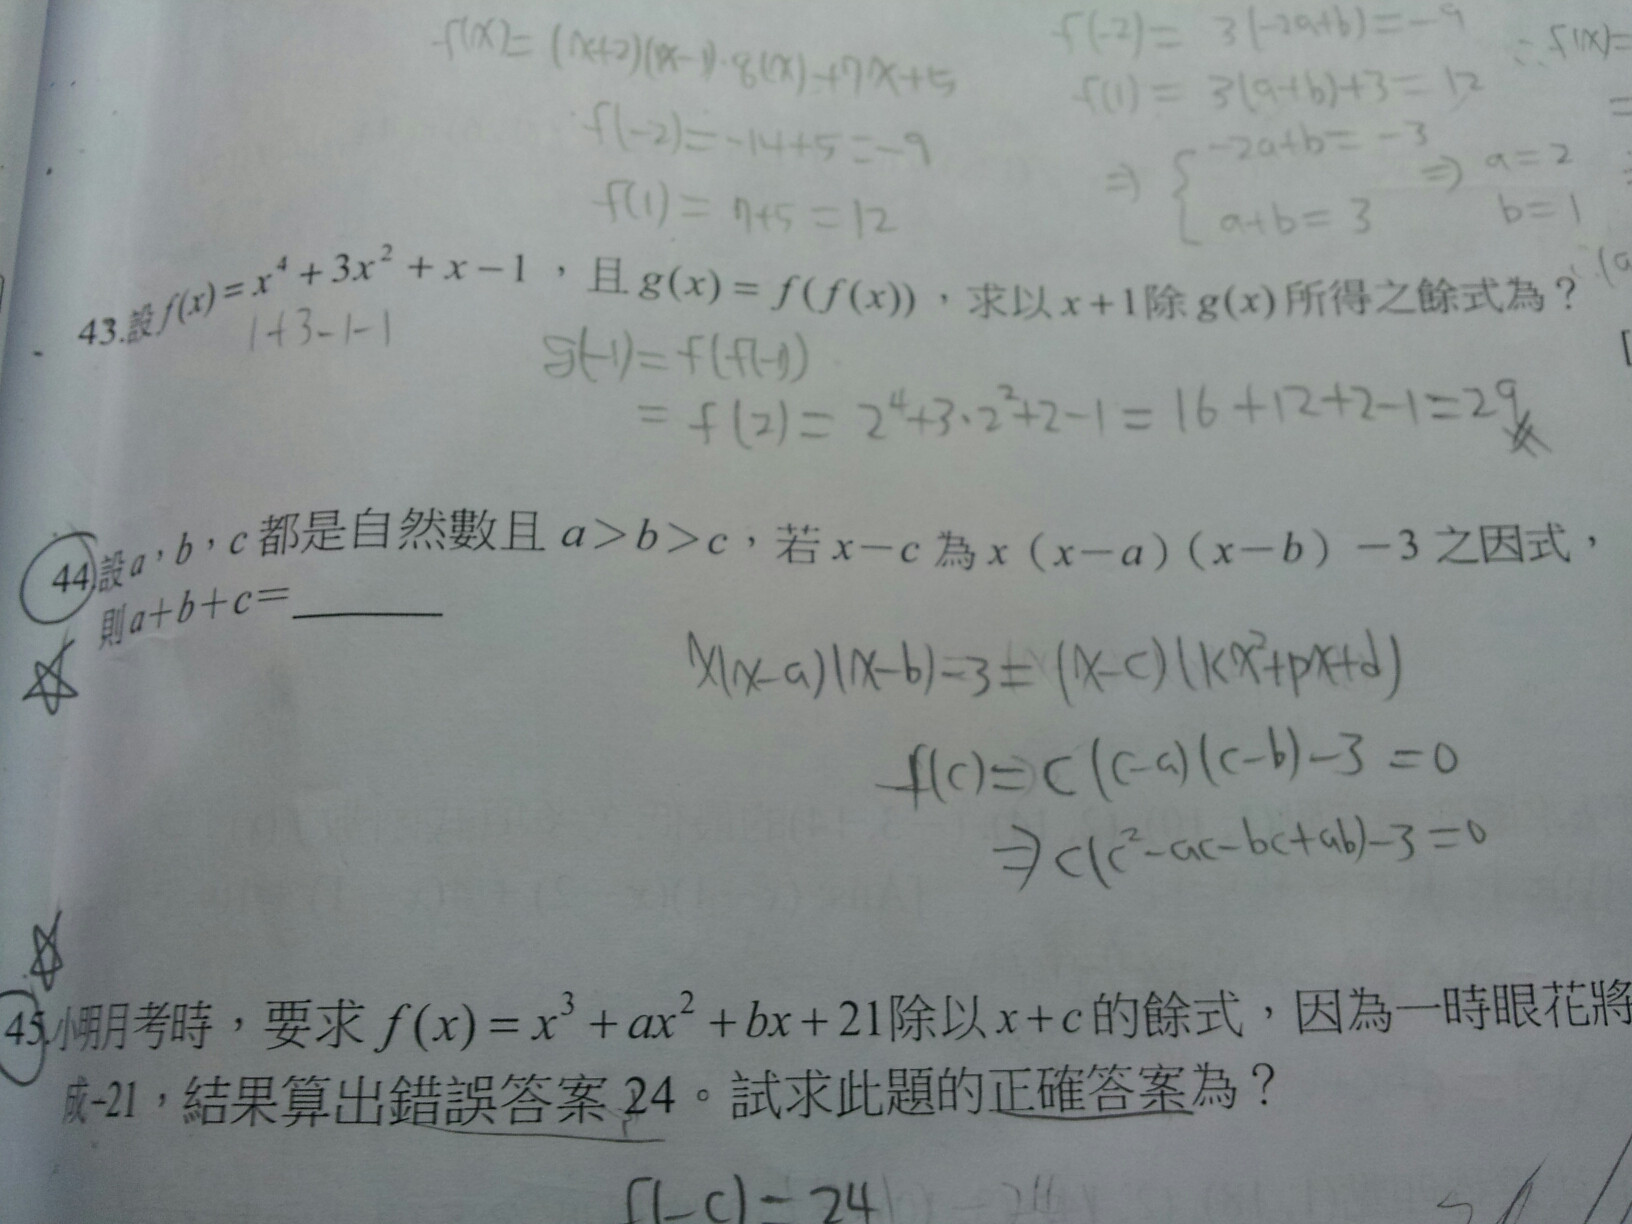 f(x)=(x+2)(x-1)·8(x)+7x+5
f(-2)=-14+5=-9
f(1)=7+5=12
f(-2)= 3(-2a+b)=-9
f(1)= 3(a+b)+3=12
⇒ { -2a+b=-3 ⇒ a=2
a+b=3 b=1
∴f(x)=
43.設f(x)=x⁴+3x²+x-1，且g(x)=f(f(x))，求以x+1除g(x)所得之餘式為？
1+3-1-1
g(-1)=f(f(-1))
=f(2)=2⁴+3·2²+2-1=16+12+2-1=29
44.設a，b，c都是自然數且a>b>c，若x-c為x(x-a)(x-b)-3之因式，
則a+b+c=______
x(x-a)(x-b)-3=(x-c)(kx²+px+d)
f(c)=c(c-a)(c-b)-3=0
⇒c(c²-ac-bc+ab)-3=0
45.小明月考時，要求f(x)=x³+ax²+bx+21除以x+c的餘式，因為一時眼花將
成-21，結果算出錯誤答案24。試求此題的正確答案為？
f(-c)=24